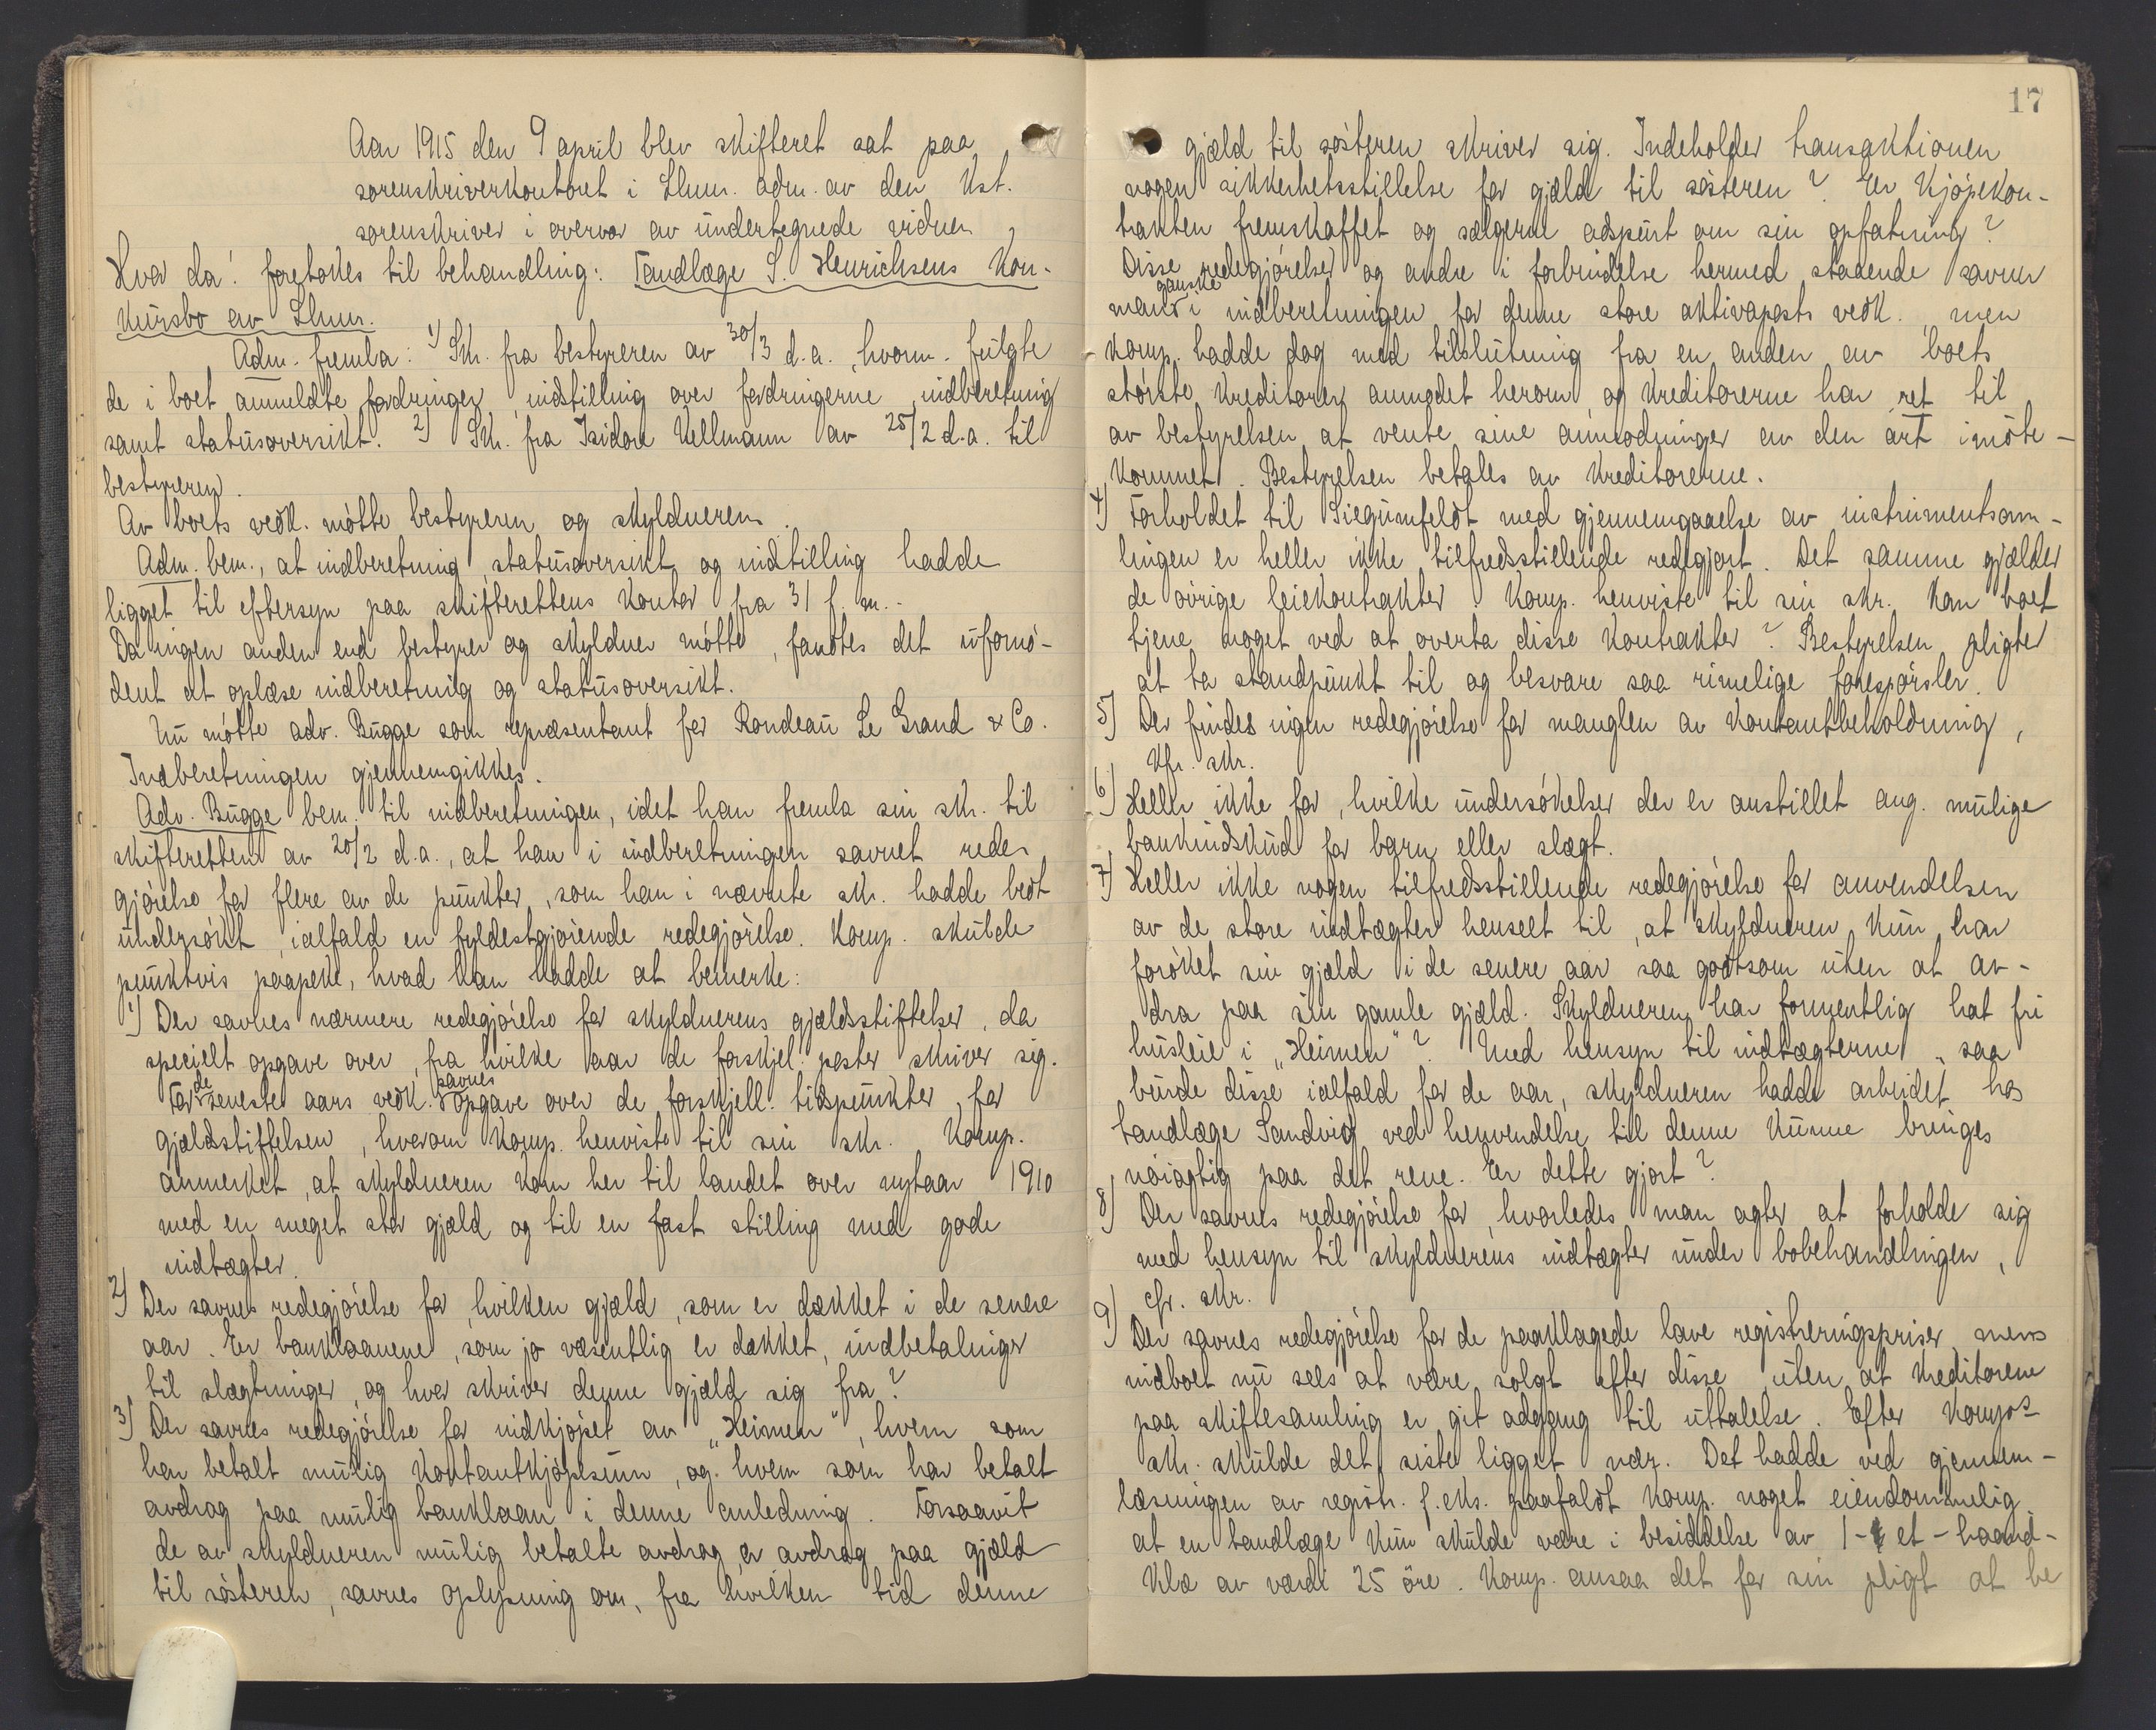 Aar 1915 den 9 april blev skifteret sat paa
sorenskriverkontoret i Lhmr. adm. av den kst.
sorenskriver i overvær av undertegnede vidner,
Hvor da: foretokes til behandling: Tandlæge S. Henrichsens Kon-
kursbo av Lhmr.
Adm. fremla: 1) Skr. fra bestyreren av 30/3 d.a., hvorm. fulgte
de i boet anmeldte fordringer, indstilling over fordringerne, indberetning
samt statusoversikt. 2) Skr. fra Isidor Kellmann av 25/2 d.a. til
bestyreren.
Av boets vedk. møtte bestyreren og skyldneren.
Adm. bem., at indberetning, statusoversikt og indtilling hadde
ligget til eftersyn paa skifterettens kontor fra 31 f. m..
Da ingen anden end bestyrer og skyldner møtte, fandtes det ufornø-
dent at oplæse indberetning og statusoversikt.
Nu møtte adv. Bugge som repræsentant for Rondeau Le Grand & Co.
Indberetningen gjennemgikkes.
Adv. Bugge bem. til indberetningen, idet han fremla sin skr. til
skifteretten av 20/2 d.a., at han i indberetningen savnet rede-
gjørelse for flere av de punkter, som han i nævnte skr. hadde bedt
undersøkt, ialfald en fyldestgjørende redegjørelse. Komp. skulde
punktvis paapeke, hvad han hadde at bemerke:
1) Der savnes nærmere redegjørelse for skyldnerens gjældsstiftelser, da
specielt opgave over, fra hvilke aar de forskjel. poster skriver sig.
For de seneste aars vedk. savnes opgave over de forskjell. tidspunkter for
gjældstiftelsen, hvorom Komp. henviste til sin skr. Komp.
anmerket, at skyldneren kom her til landet over nytaar 1910
med en meget stor gjæld og til en fast stilling med gode
indtægter.
2) Der savnes redegjørelse for, hvilken gjæld, som er dækket i de senere
aar. Er banklaanene, som jo væsentlig er dækket, indbetalinger
til slægtninger, og hvor skriver denne gjæld sig fra?
3) Der savnes redegjørelse for indkjøpet av "Heimen", hvem som
har betalt mulig kontantkjøpesum, og hvem som har betalt
avdrag paa mulig banklaan i denne anledning. Forsaavit
de av skyldneren mulig betalte avdrag er avdrag paa gjæld
til søsteren, savnes oplysning om, fra hvilken tid denne
17
gjæld til søsteren skriver sig. Indeholder transaktionen
nogen sikkerhetsstillelse for gjæld til søsteren? Er kjøpekon-
trakten fremskaffet og sælgerne adspurt om sin opfatning?
Disse redegjørelser og andre i forbindelse hermed staaende savner
man ganske i indberetningen for denne store aktivaposts vedk., men
Komp. hadde dog med tilslutning fra en anden av boets
største kreditorer anmodet herom, og kreditorerne har ret til
av bestyrelsen at vente sine anmodninger av den art imøte-
kommet. Bestyrelsen betales av kreditorerne.
4) Forholdet til Siegumfeldt med gjennemgaaelse av instrumentsam-
lingen er heller ikke tilfredsstillende redegjort. Det samme gjælder
de øvrige leiekontrakter. Komp. henviste til sin skr. Kan boet
tjene noget ved at overta disse kontrakter? Bestyrelsen pligter
at ta standpunkt til og besvare saa rimelige forespørsler.
5) Der findes ingen redegjørelse for manglen av kontantbeholdning,
kfr. skr.
6) Heller ikke for, hvilke undersøkelser der er anstillet ang. mulige
bankindskud for barn eller slægt.
7) Heller ikke nogen tilfredsstillende redegjørelse for anvendelsen
av de store indtægter henseet til, at skyldneren kun har
forøket sin gjæld i de senere aar saa godtsom uten at av-
dra paa sin gamle gjæld. Skyldneren har formentlig hat fri
husleie i "Heimen"? Med hensyn til indtægterne, saa
burde disse ialfald for de aar, skyldneren hadde arbeidet hos
tandlæge Sandvig ved henvendelse til denne kunne bringes
nøiagtig paa det rene. Er dette gjort?
8) Der savnes redegjørelse for, hvorledes man agter at forholde sig
med hensyn til skyldnerens indtægter under bobehandlingen,
cfr. skr.
9) Der savnes redegjørelse for de paaklagede lave registreringspriser, mens
indboet nu sees at være solgt efter disse uten at kreditorene
paa skiftesamling er git adgang til uttalelse. Efter Komps
skr. skulde det siste ligget nær. Det hadde ved gjennem-
læsningen av registr. f.eks. paafaldt Komp. noget eiendommelig
at en tandlæge kun skulde være i besiddelse av 1 - et - haand-
klæ av værdi 25 øre. Komp. ansaa det for sin pligt at be